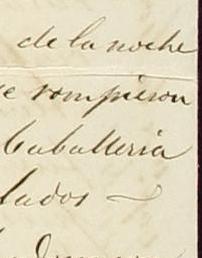 de la noche
se rompieron
Caballeria
lados